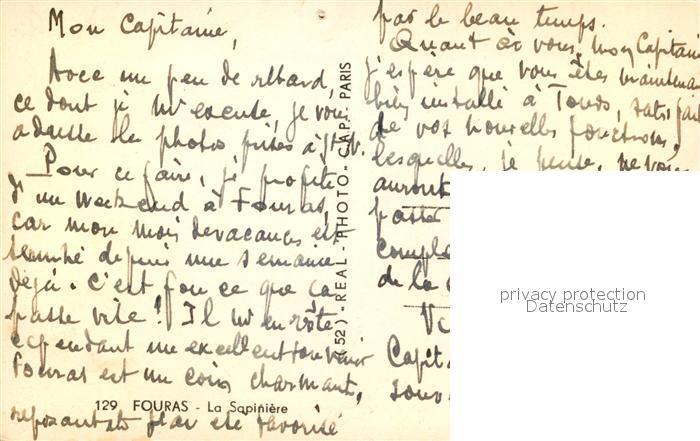 Mon Capitaine,
Avec un peu de retard,
ce dont je m'excuse, je vous
adresse les photos prises à
Pour ce faire, je profite
d'un weekend à Fouras,
car mon mois de vacances est
terminé depuis une semaine
déjà. C'est fou ce que ça
passe vite ! Il m'en reste
cependant un excellent souvenir
Fouras est un coin charmant,
129 FOURAS - La Sapinière
reposant et
favorisé
(52) - REAL - PHOTO - C.A.P. - PARIS
par le beau temps.
Quant à vous, mon Capitaine
j'espère que vous êtes maintenant
bien installé à
de vos nouvelles fonctions,
lesquelles, je pense, ne vous
auront
passé
de la
Capit
souv
privacy protection
Datenschutz